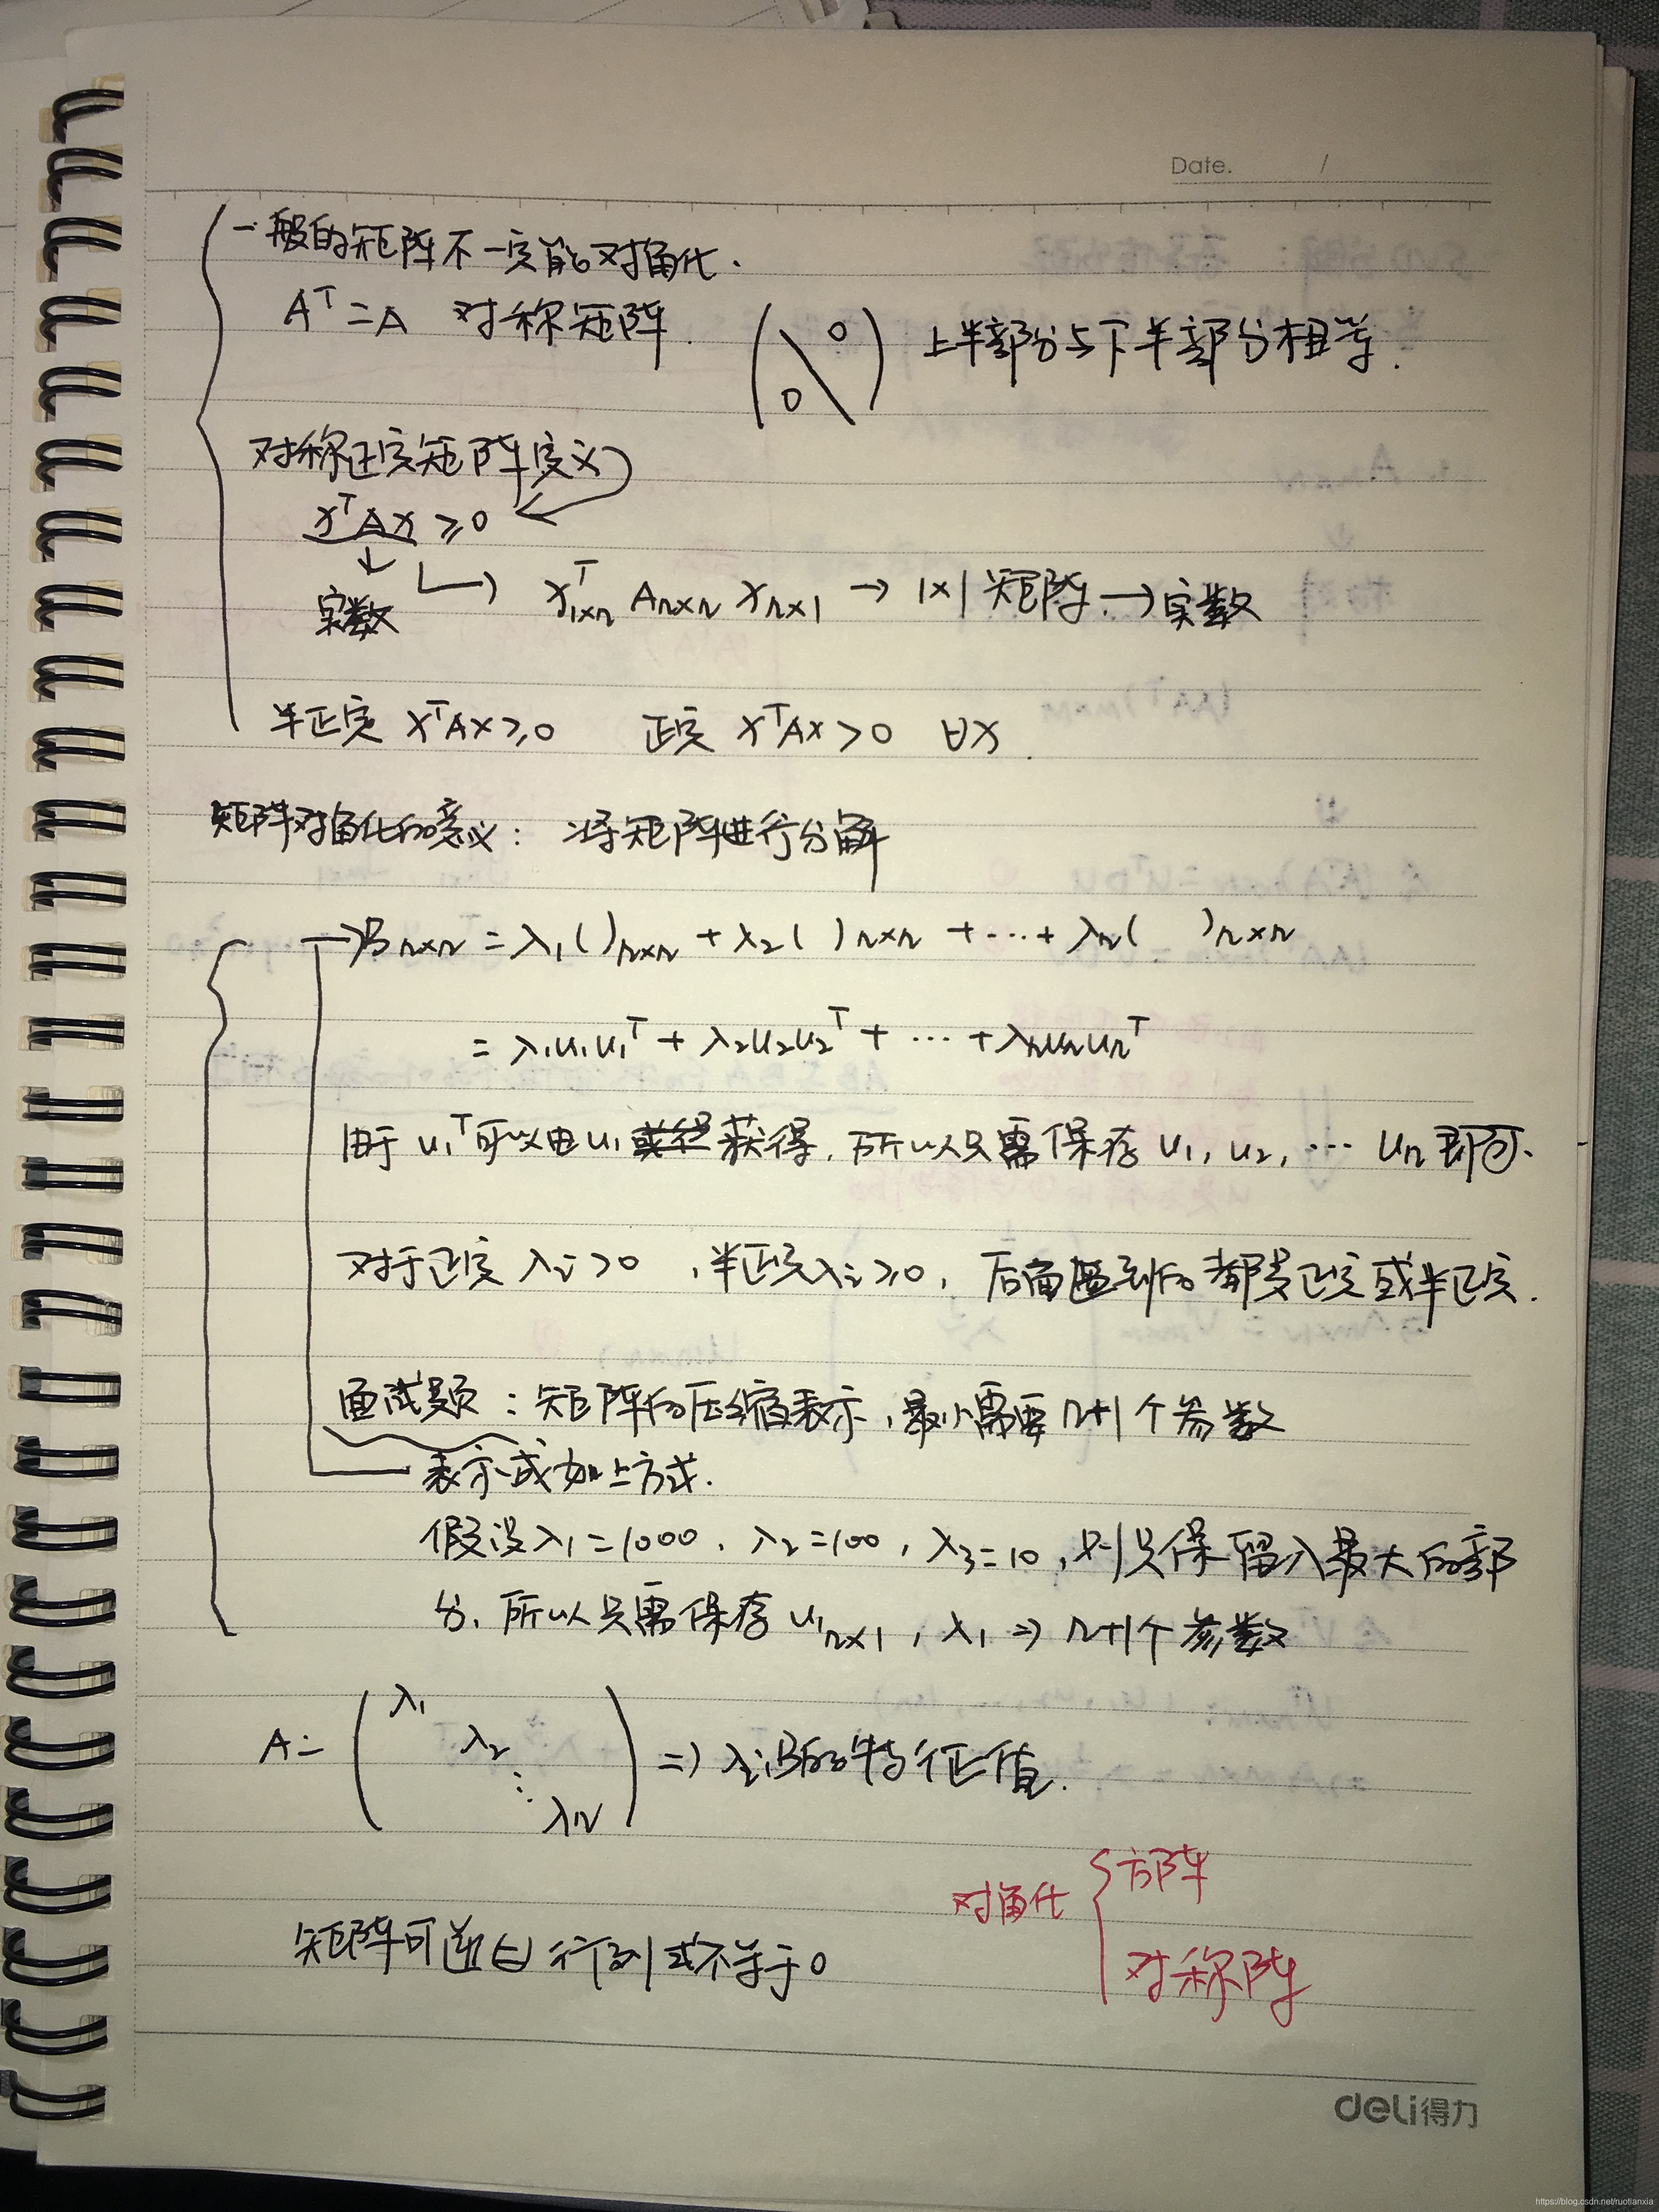 Date. /
一般的矩阵不一定能对角化.
Aᵀ=A 对称矩阵. ( 0 \ 0 ) 上半部分与下半部分相等.
对称正定矩阵定义
xᵀAx ≥0
实数 → xᵀ₁ₓₙ Aₙₓₙ xₙₓ₁ → 1×1矩阵 → 实数
半正定 xᵀAx≥0 正定 xᵀAx>0 ∀x.
矩阵对角化的意义: 将矩阵进行分解
→Bₙₓₙ = λ₁( )ₙₓₙ + λ₂( )ₙₓₙ +⋯+ λₙ( )ₙₓₙ
= λ₁u₁u₁ᵀ + λ₂u₂u₂ᵀ + ⋯ + λₙuₙuₙᵀ
由于 u₁ᵀ可以由u₁获得, 所以只需保存 u₁, u₂, ⋯ uₙ 即可.
对于正定 λᵢ>0 , 半正定λᵢ≥0, 后面遇到的都是正定或半正定.
面试题: 矩阵的压缩表示, 最小需要 n+1个参数
表示成如上方式.
假设λ₁=1000, λ₂=100, λ₃=10, 则只保留λ最大的部
分, 所以只需保存 u₁ₙₓ₁, λ₁ ⇒ n+1个参数
A= ( λ₁ λ₂ ⋱ λₙ ) ⇒ λᵢ是B的特征值.
对角化 { 方阵
对称阵
矩阵可逆 ⇔ 行列式不等于0
deli得力
https://blog.csdn.net/ruotianxia